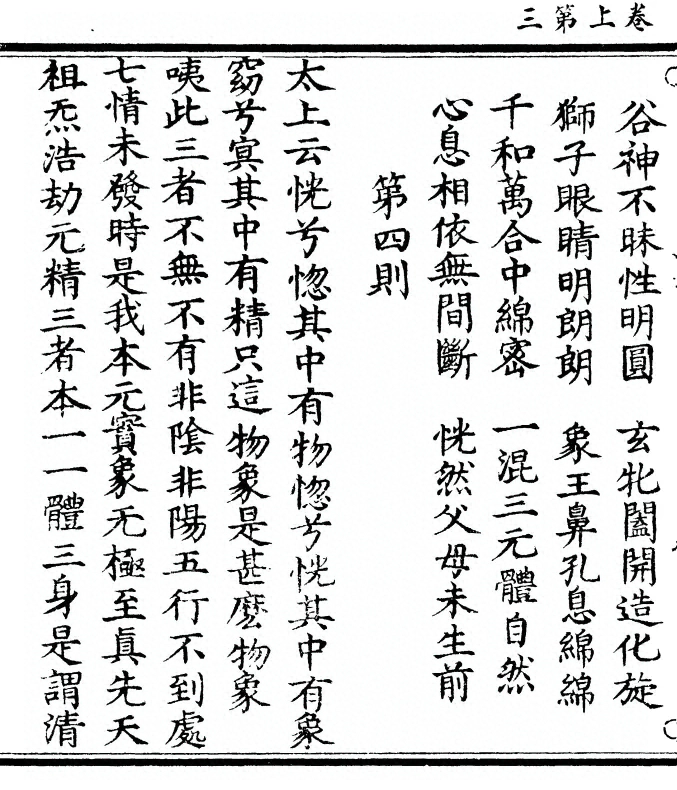 卷上第三
谷神不昧性明圓　玄牝闔開造化旋
獅子眼睛明朗朗　象王鼻孔息綿綿
千和萬合中綿密　一混三元體自然
心息相依無間斷　恍然父母未生前
第四則
太上云恍兮惚其中有物惚兮恍其中有象
窈兮冥其中有精只這物象是甚麽物象
咦此三者不無不有非陰非陽五行不到處
七情未發時是我本元寳象无極至眞先天
祖炁浩劫元精三者本一一體三身是謂清